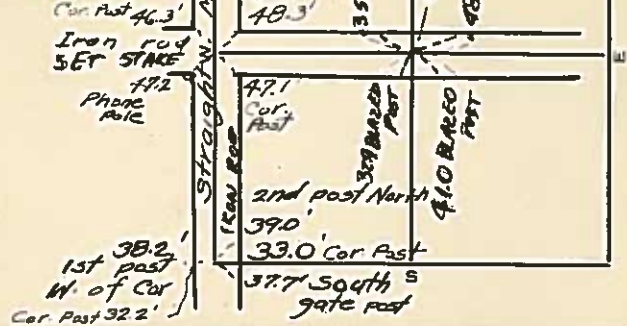 Cor. Post 46.3'
48.3'
.35
.48
Iron rod
SET STAKE
47.2
Phone
pole
47.1
Cor.
Post
W
Straight
IRON ROD
32.9 BLAZED
POST
41.0 BLAZED
POST
E
2nd post North
39.0'
33.0' Cor Post
38.2'
1st post
W. of Cor
Cor. Post 32.2'
37.7' South
gate post
S